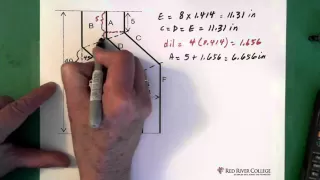 E = 8 x 1.414 = 11.31 in
C = D = E = 11.31 in
dil = 4(0.414) = 1.656
A = 5 + 1.656 = 6.656 in
5
B
A
5
C
D
F
RED RIVER COLLEGE